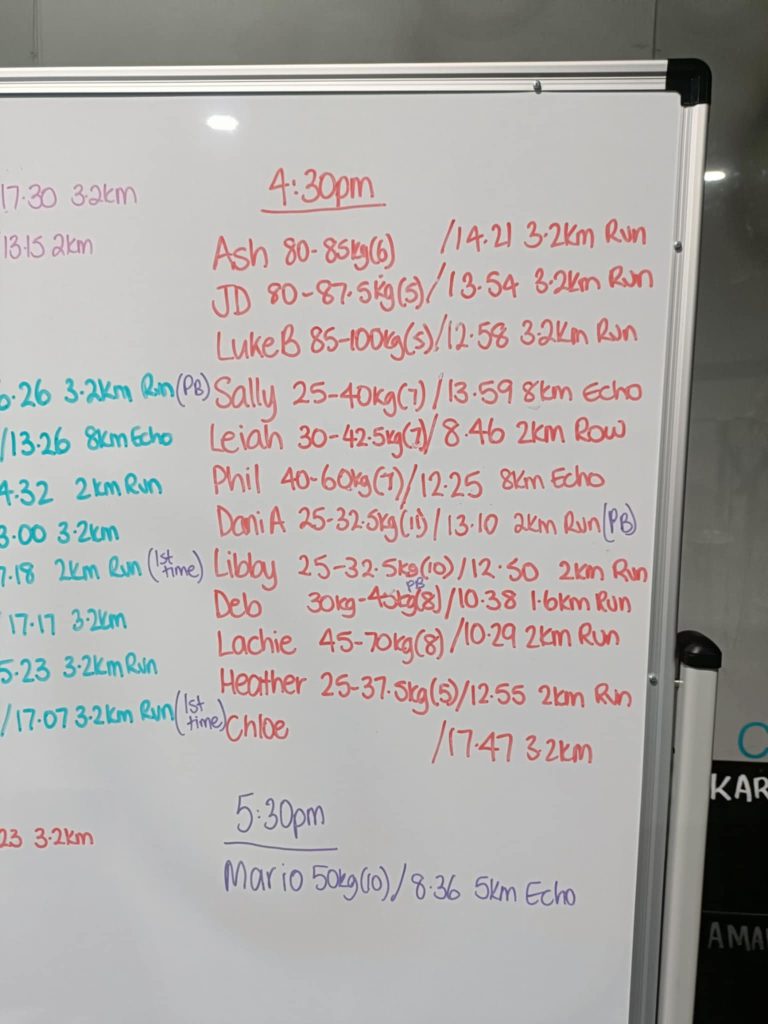 17.30 3.2km
13.15 2km
6.26 3.2km Run (PB)
/13.26 8km Echo
4.32 2km Run
3.00 3.2km
7.18 2km Run (1st time)
/17.17 3.2km
5.23 3.2km Run
/17.07 3.2km Run (1st time)
23 3.2km
4:30pm
Ash 80-85kg(6) /14.21 3.2km Run
JD 80-87.5kg(5)/13.54 3.2km Run
Luke B 85-100kg(5)/12.58 3.2km Run
Sally 25-40kg(7)/13.59 8km Echo
Leiah 30-42.5kg(7)/8.46 2km Row
Phil 40-60kg(7)/12.25 8km Echo
Dani A 25-32.5kg(11)/13.10 2km Run (PB)
Libby 25-32.5kg(10)/12.50 2km Run
PB
Deb 30kg-45kg(8)/10.38 1.6km Run
Lachie 45-70kg(8)/10.29 2km Run
Heather 25-37.5kg(5)/12.55 2km Run
Chloe /17.47 3.2km
5:30pm
Mario 50kg(10)/8.36 5km Echo
KAR
AMA